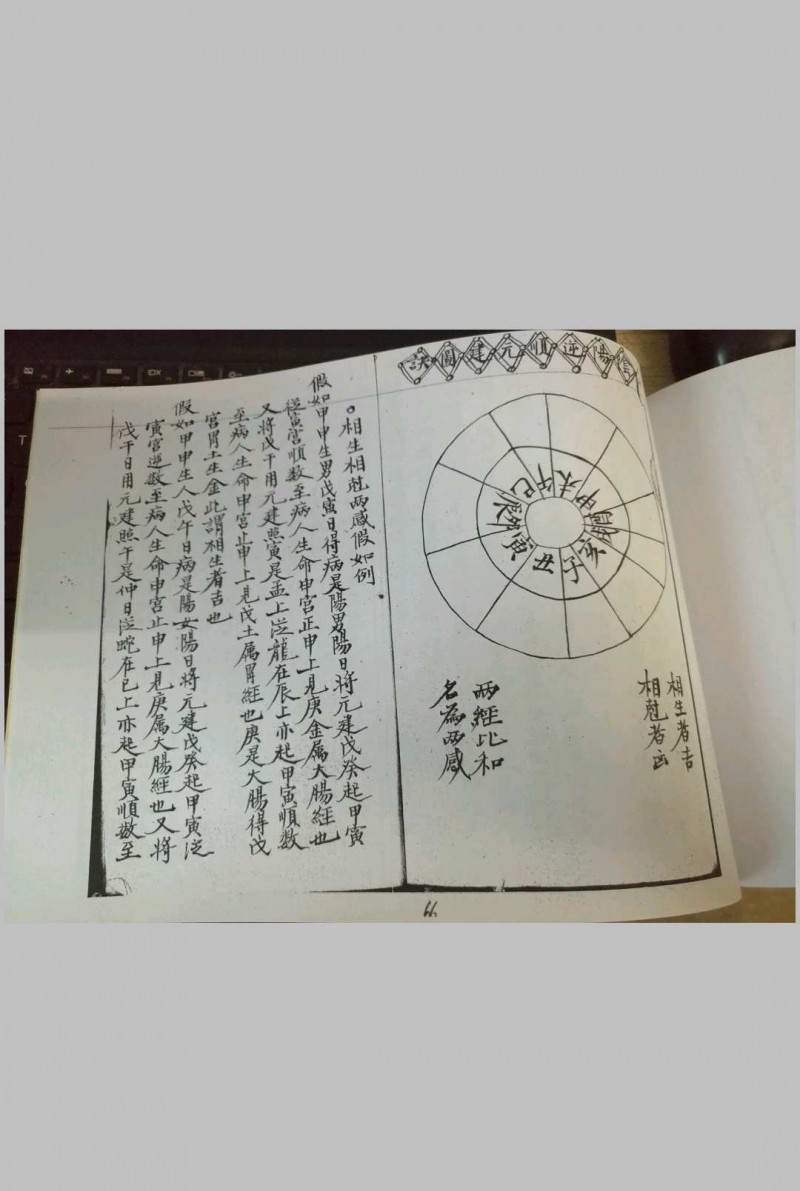 陽逆順元建圖訣
巳午未申
亥子丑寅
相生者吉
相尅者凶
兩經比和
名為兩感
。相生相尅兩感假如例
假如甲申生男戊寅日得病是陽男陽日將元建戊癸起甲寅
從寅宮順數至病人生命申宮止申上見庚金属大腸經也
又將戊干用元建照寅是孟上泛龍在辰上亦起甲寅順数
至病人生命申宮止申上見戊土属胃經也庚是大腸得戊
宮胃土生金此謂相生者吉也
假如甲申生人戊午日病是陽女陽日將元建戊癸起甲寅泛
寅宮逆数至病人生命申宮止申上見庚属大腸經也又將
戊干日用元建照午是仲日泛蛇在巳上亦起甲寅順数至
66